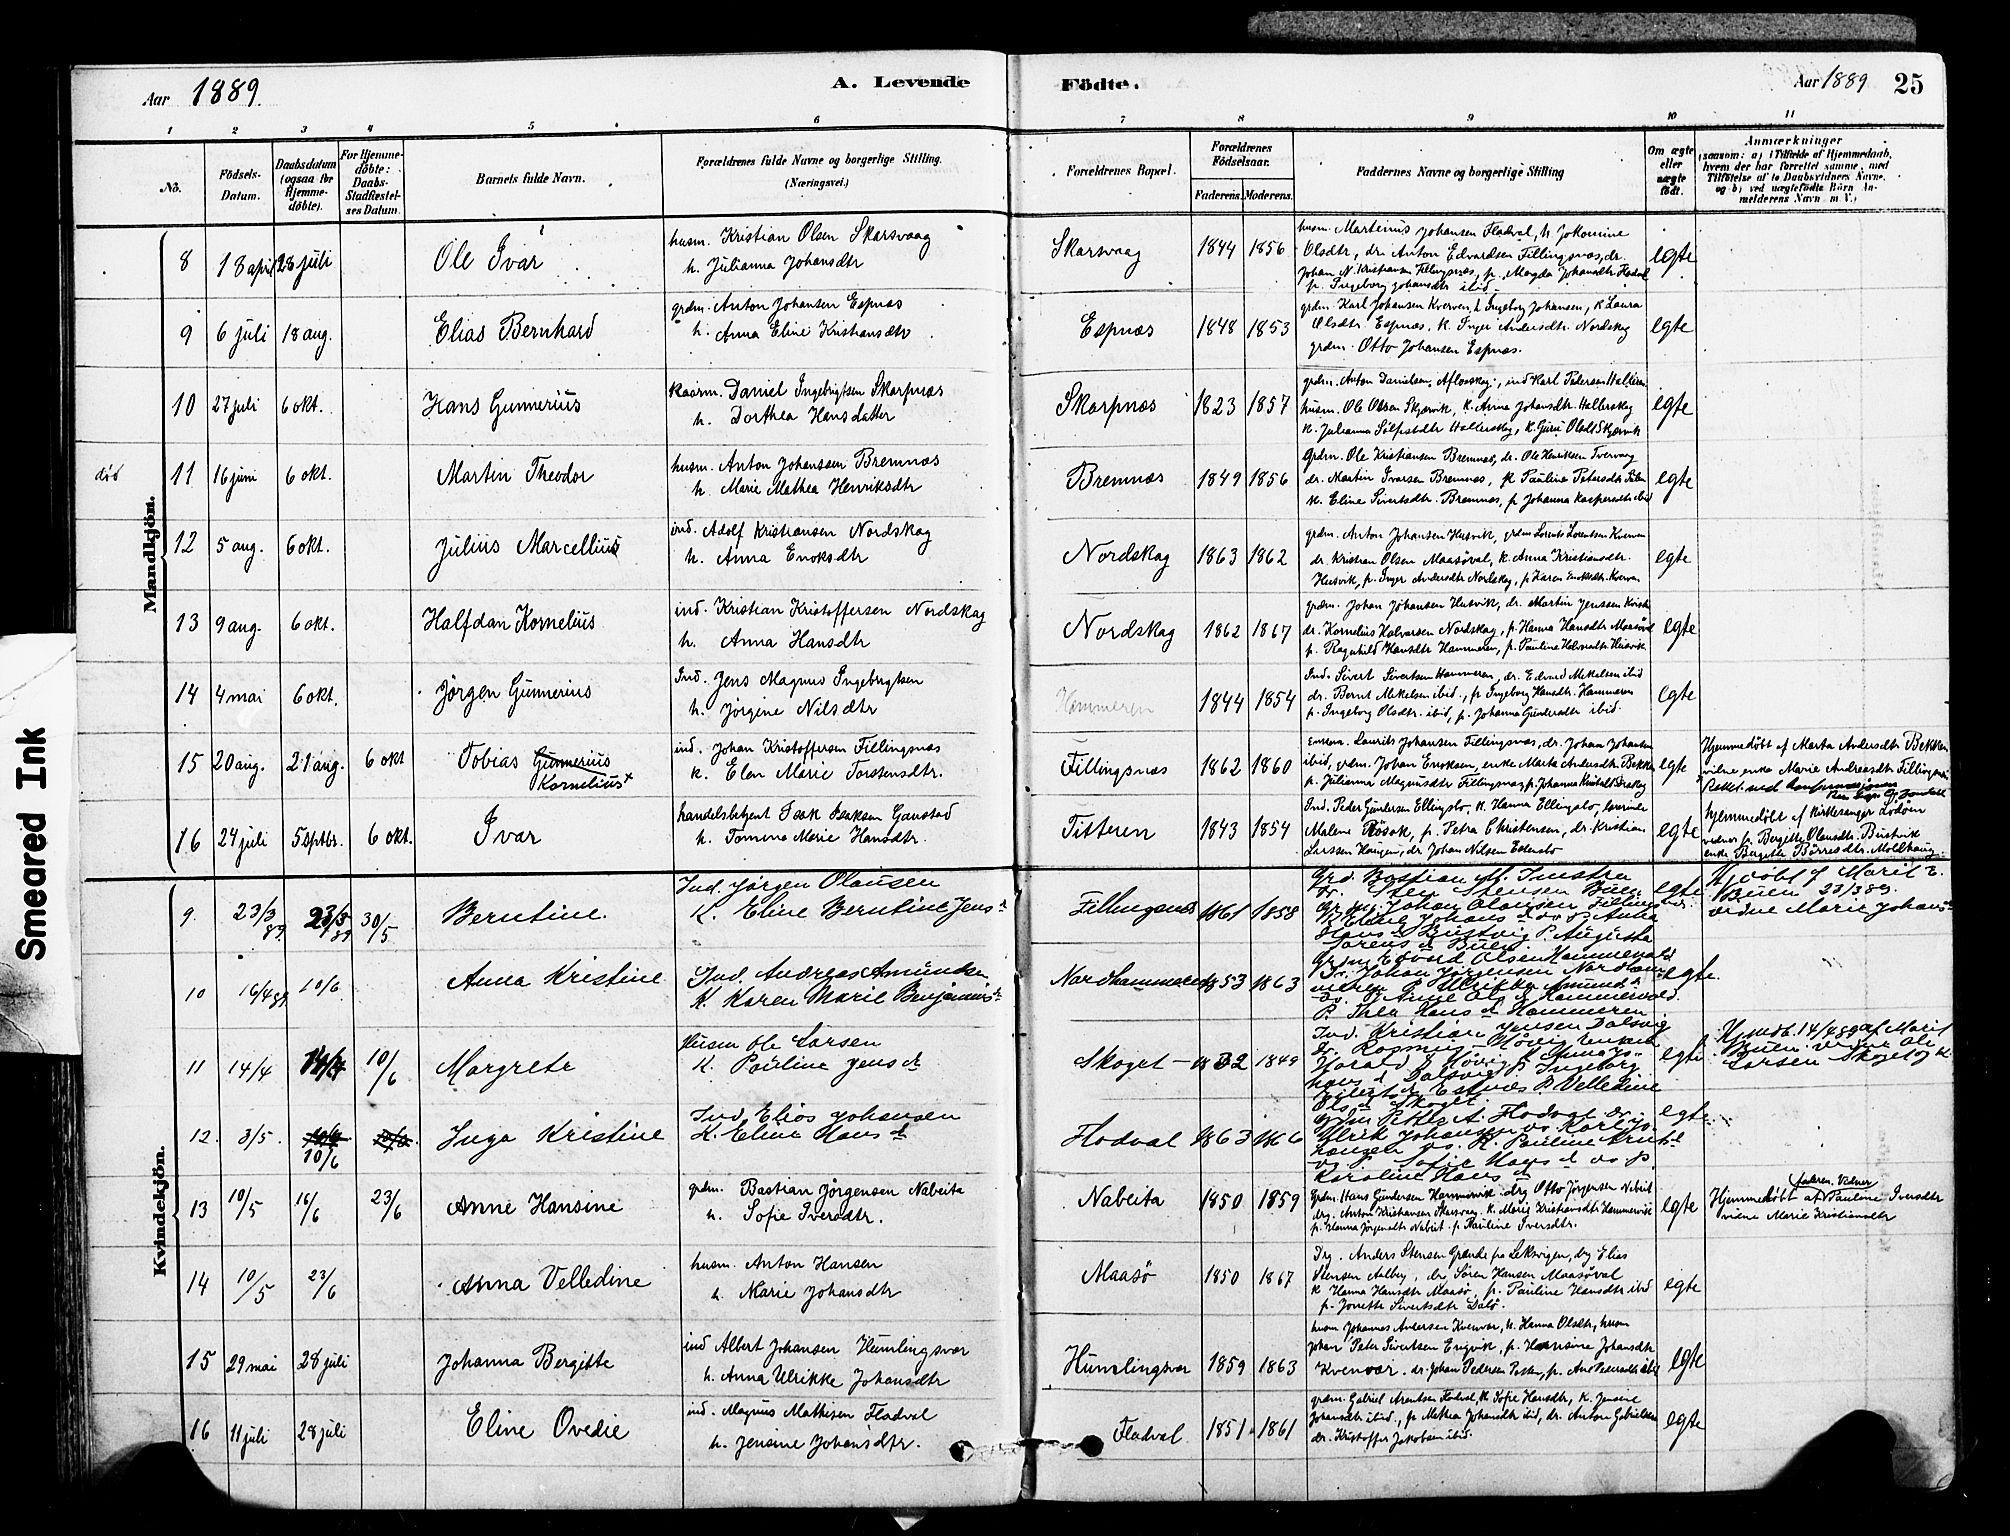 Smeared Ink
Aar 1889.
A. Levende Födte.
Aar 1889 25
1 2 3 4 5 6 7 8 9 10 11
No.
Födsels-Datum.
Daabsdatum (ogsaa for Hjemme-döbte).
For Hjemme-döbte: Daabs-Stadfæstel-ses Datum.
Barnets fulde Navn.
Forældrenes fulde Navne og borgerlige Stilling. (Næringsvei.)
Forældrenes Bopæl.
Forældrenes Födselsaar.
Faderens. Moderens.
Faddernes Navne og borgerlige Stilling
Om ægte eller uægte födt.
Anmærkninger
(saasom: a) i Tilfælde af Hjemmedaab, hvem der har forrettet samme, med Tilföielse af to Daabsvidners Navne, og b) ved uægtefödte Börn An-melderens Navn m. V.)
Mandkjön.
8 18 april 28 juli Ole Ivar
husm. Kristian Olsen Skarsvaag
h. Julianna Johansdtr
Skarsvaag 1844 1856
husm. Martinus Johansen Flodval, h. Jokomine
Olsdtr, dr. Anton Edvardsen Fillingsnæs, dr.
Johan N. Kristiansen Fillingsnæs, p. Magda Johansdtr Flodval
p. Ingeborg Johansdtr ibid.
egte
9 6 juli 18 aug. Elias Bernhard
grdm. Anton Johansen Espnæs
h. Anna Eline Kristiansdtr
Espnæs 1848 1853
grdm. Karl Johansen Kverven, h Ingeborg Johansen, k Laura
Olsdtr Espnæs, k. Inger Andersdtr Nordskag
grdm. Otto Johansen Espnæs.
egte
10 27 juli 6 okt. Hans Gunnerius
Kaarm. Daniel Ingebrigtsen Skarpnæs
h. Dorthea Hansdatter
Skarpnæs 1823 1857
grdm. Anton Danielsen, ind Karl Pedersen
husm. Ole Olsen Skjærvik, k. Anna Johansdtr
k. Julianna
egte
död 11 16 juni 6 okt. Martin Theodor
husm. Anton Johanssen Bremnæs
h. Marie Mathea Henriksdtr
Bremnæs 1849 1856
Grdm. Ole Kristiansen Bremnæs, dr. Ole Henriksen
dr. Martin Ivarsen Bremnæs, k Pauline Petersdtr
k. Eline Sivertsdtr. Bremnæs, p Johanna Kaspersdtr ibid
egte
12 5 aug. 6 okt. Julius Marcellius
ind. Adolf Kristiansen Nordskag
h. Anna Enoksdtr
Nordskag 1863 1862
grdm. Anton Johansen Husvik, grdm Lorents Lorentsen Kverven
dr. Kristian Olsen Maasöval, k. Anna Kristiansdtr.
Husvik, p. Inger Andersdtr Nordskag, p Karen Enoksdtr. Kverven
egte
13 9 aug. 6 okt. Halfdan Kornelius
ind. Kristian Kristoffersen Nordskag
h. Anna Hansdtr
Nordskag 1862 1867
grdm. Johan Johansen Husvik, dr. Martin Jenssen
dr. Kornelius Halvorsen Nordskag, p. Hanna Hansdtr
p. Ragnhild Hansdtr Hammeren, p. Pauline Halvorsdtr Husvik
egte
14 4 mai 6 okt. Jörgen Gunnerius
Ind. Jens Magnus Ingebrigtsen
h. Jörgine Nilsdtr
Hammeren 1844 1854
Ind. Sivert Sivertsen Hammeren, dr. Edvard Mikelsen ibid
dr. Bernt Mikelsen ibid., p Ingeborg Hansdtr. Hammeren
p. Ingeborg Olsdtr. ibid, p. Johanna Gundersdtr ibid.
egte
15 20 aug. 21 aug. 6 okt Tobias Gunnerius
Kornelius x
ind. Johan Kristoffersen Fillingsnæs
k. Elen Marie Torstensdtr.
Fillingsnæs 1862 1860
Laurits Johansen Fillingsnæs, dr. Johan Johansen
ibid, grdm. Johan Enoksen, enke Marta Andersdtr Bekken
p. Julianna Magnusdtr Fillingsnæs,
egte
Hjemmedöbt af Marta Andersdtr Bekken
vidne enke Marie Andreasdtr Fillingsnæs
Rettet ved konfirmasjonen
16 24 juli 5 sptbr. 6 okt. Ivar
handelsbetjent Isak Isaksen Ganstad
h. Tomine Marie Hansdtr.
Titteren 1843 1854
Ind. Peder Gundersen Ellingslo, K. Hanna Ellingslo,
Malene Rösok, p. Petra Christensen, dr. Kristian
Larssen Haugen, dr Johan Nilsen
egte
hjemmedöbt af Kirkesanger
vidner p. Bergitte Olausdtr. Bustvik
enke Bergitte Börresdtr. Molthaug
Kvindekjön.
9 23/3 89. 23/3 89 30/5 Berntine.
Ind. Jörgen Olausen
K. Eline Berntine Jens d
Fillingsnæs 1861 1858
Grd. Bastian M.
Dr. Sten Stensen Buen
Johan Olausen
K. Eline Johans d
Hans d Bustvig P. Augusta
Sörens d Buen.
egte
Hj. döbt af Marit E.
Buen 23/3 89.
vidne Marie Johans d
10 16/4 89 10/6 Anna Kristine
Ind. Andreas Amundsen
K. Karen Marie Benjamins d
Nordhammeren 1853 1863
Grdm Edvard Olsen Hammervold
Dr. Johan Jörgensen
P. Ulrikke Amunds d
P. Anne Ols d Hammervold.
P. Thea Hans d Hammeren
egte.
11 14/4 14/4 10/6 Margrete
Husm Ole Larsen
K. Pauline Jens d
Skoget 1832 1849
Ind. Kristian Jensen Dalsvig
Dr. Rasmus Hövig
Harald J Hövig
Hans d Dalsvig P. Ingeborg
P. Velledine
Ols d Skoget.
egte
Hjmdb. 14/4 89 af Marit
Buen. vidne Ole
Larsen Skoget og K.
12. 3/5. 10/6 10/6 10/6 Inga Kristine
Ind Elias Johansen
K. Eline Hans d
Flodval 1863 1866
Grdm Petter A. Flodval
Ulrik Johansen
K. Pauline
P. Sofie Hans d
Karoline Hans d
egte
13 10/5 16/6 23/6 Anne Hansine
grdm. Bastian Jörgensen Nabeita
h. Sofie Iversdtr.
Nabeita 1850 1859
Grdm. Hans Gundersen Hammervik, drg Otto Jörgensen Nabeit
drg. Anton Kristiansen Skarsvaag. k. Marie Kristiansdtr Hammervik
p. Hanna Jörgensdtr Nabeit. p Pauline Iversdtr.
egte
Hjemmedöbt af Pauline Iversdtr
vidne Marie Kristiansdtr
14 10/5 23/6 Anna Velledine
husm. Anton Hansen
h. Marie Johansdtr
Maasö 1850 1867
Drg. Anders Stensen Grande fra Leksvigen, drg Elias
Stensen Aalbry, dr. Sören Hansen Maasöval
k Hanna Hansdtr Maasö, p. Pauline Hansdtr ibid
p. Jorette Sivertsdtr Dalö.
egte
15 29 mai 28 juli Johanna Bergitte
ind Albert Johansen Humlingsvær
h. Anna Ulrikke Johansdtr
Humlingsvær 1859 1863
husm Johannes Andersen Kvenvær, h. Hanna Olsdtr, husm
Johan Peter Sivertsen Engvik, p. Hansine Johansdtr
Kvenvær. dr. Johan Pedersen
egte
16 11 juli 28 juli Eline Ovedie
ind. Magnus Mathisen Flodval
h. Jensine Johansdtr.
Flodval 1851 1861
grdm. Gabriel Arentsen Flodval, k. Sofie Hansdtr, k. Jensine
Johansdtr ibid., p Mathea Johansdtr ibid, dr. Anton Gabrielsen
dr. Kristoffer Jakobsen ibid.
egte